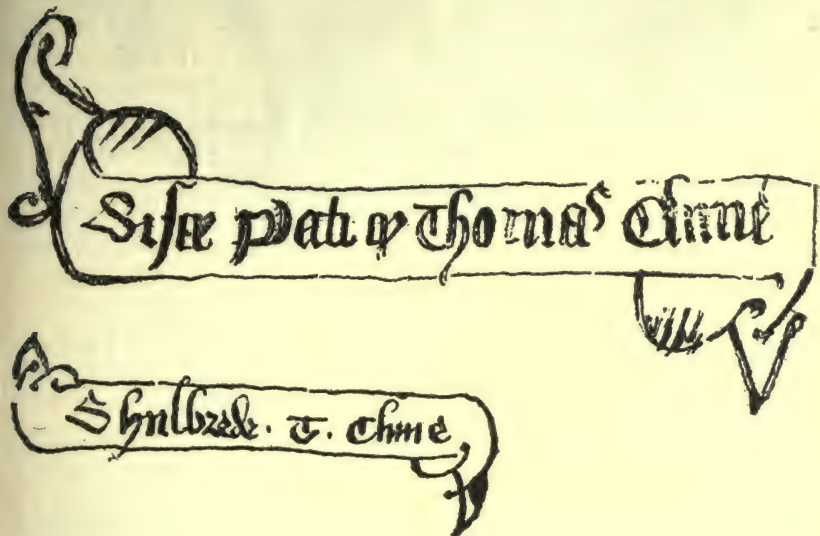 Disce Pati ꝙ Thomas Clune
Shulbrede . T . Clune